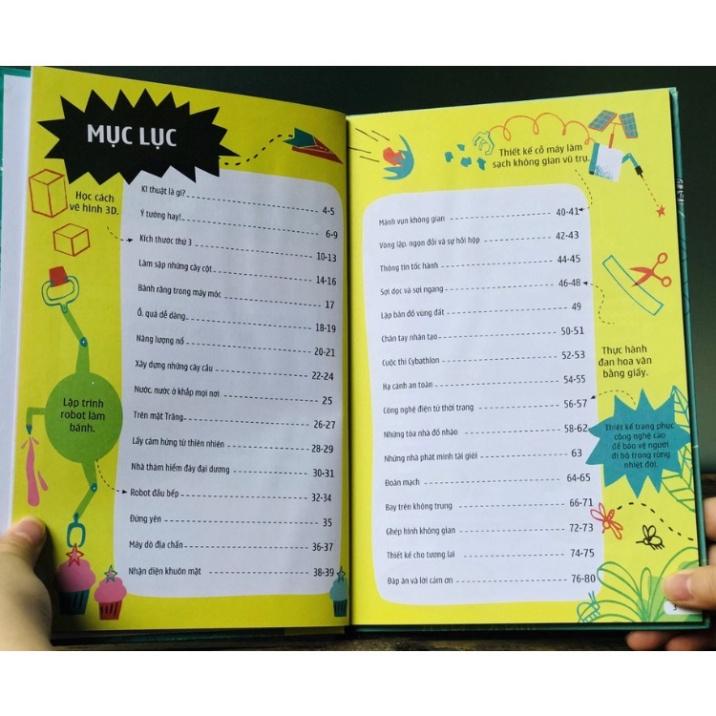 MỤC LỤC
Học cách
vẽ hình 3D.
Kĩ thuật là gì? 4-5
Ý tưởng hay! 6-9
Kích thước thứ 3 10-13
Làm sập những cây cột 14-16
Bánh răng trong máy móc 17
Ồ, quá dễ dàng 18-19
Năng lượng nổ 20-21
Xây dựng những cây cầu 22-24
Nước, nước ở khắp mọi nơi 25
Trên mặt Trăng 26-27
Lấy cảm hứng từ thiên nhiên 28-29
Nhà thám hiểm đáy đại dương 30-31
Robot đầu bếp 32-34
Đứng yên 35
Máy dò địa chấn 36-37
Nhận diện khuôn mặt 38-39
Lập trình
robot làm
bánh.
Thiết kế cỗ máy làm
sạch không gian vũ trụ.
Mảnh vụn không gian 40-41
Vòng lặp, ngọn đồi và sự hồi hộp 42-43
Thông tin tốc hành 44-45
Sợi dọc và sợi ngang 46-48
Lập bản đồ vùng đất 49
Chân tay nhân tạo 50-51
Cuộc thi Cybathlon 52-53
Hạ cánh an toàn 54-55
Công nghệ điện tử thời trang 56-57
Những tòa nhà đồ nhào 58-62
Những nhà phát minh tài giỏi 63
Đoản mạch 64-65
Bay trên không trung 66-71
Ghép hình không gian 72-73
Thiết kế cho tương lai 74-75
Đáp án và lời cảm ơn 76-80
Thực hành
đan hoa văn
bằng giấy.
Thiết kế trang phục
công nghệ cao
để bảo vệ người
đi bộ trong rừng
nhiệt đới.
3